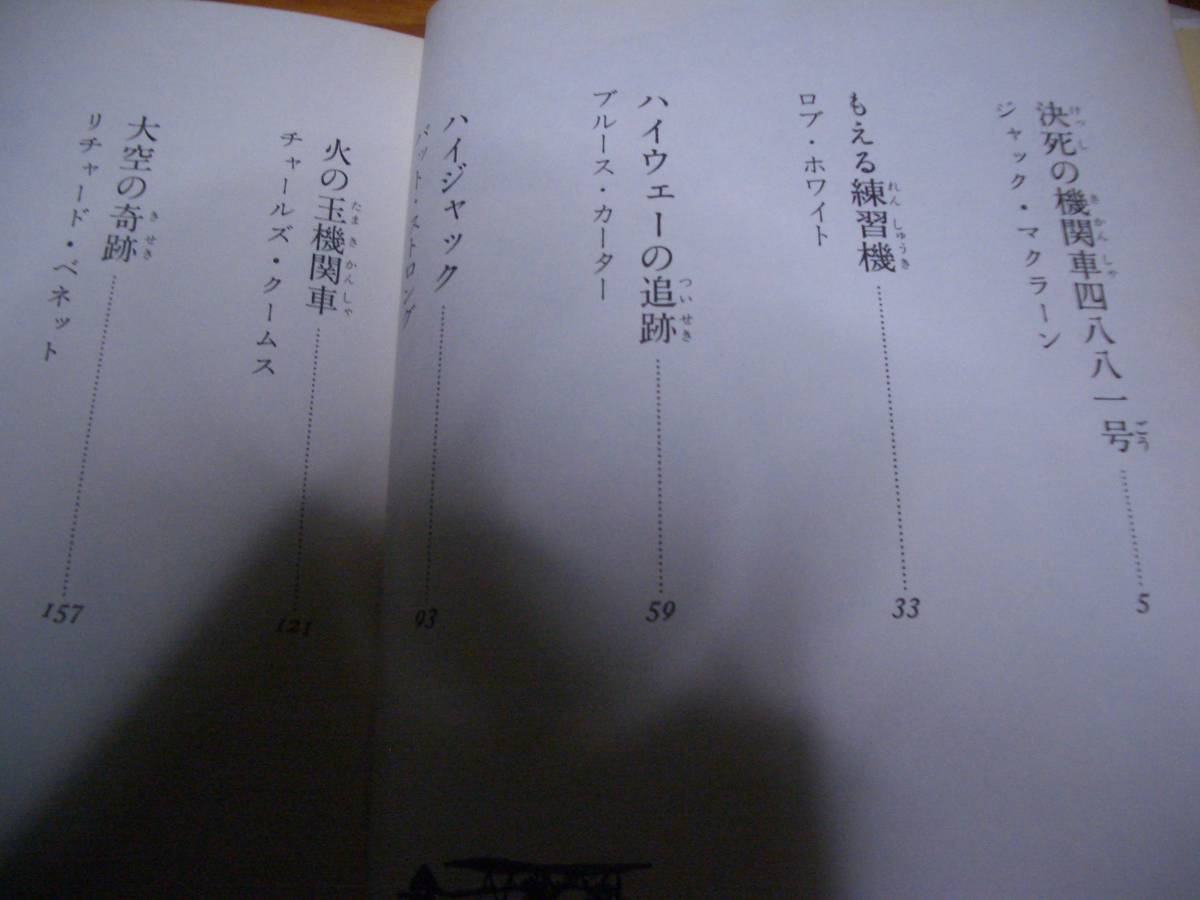 決死の機関車四八八一号 5
ジャック・マクラーン
もえる練習機 33
ロブ・ホワイト
ハイウェーの追跡 59
ブルース・カーター
ハイジャック 93
パット・ストロング
火の玉機関車 121
チャールズ・クームス
大空の奇跡 157
リチャード・ベネット